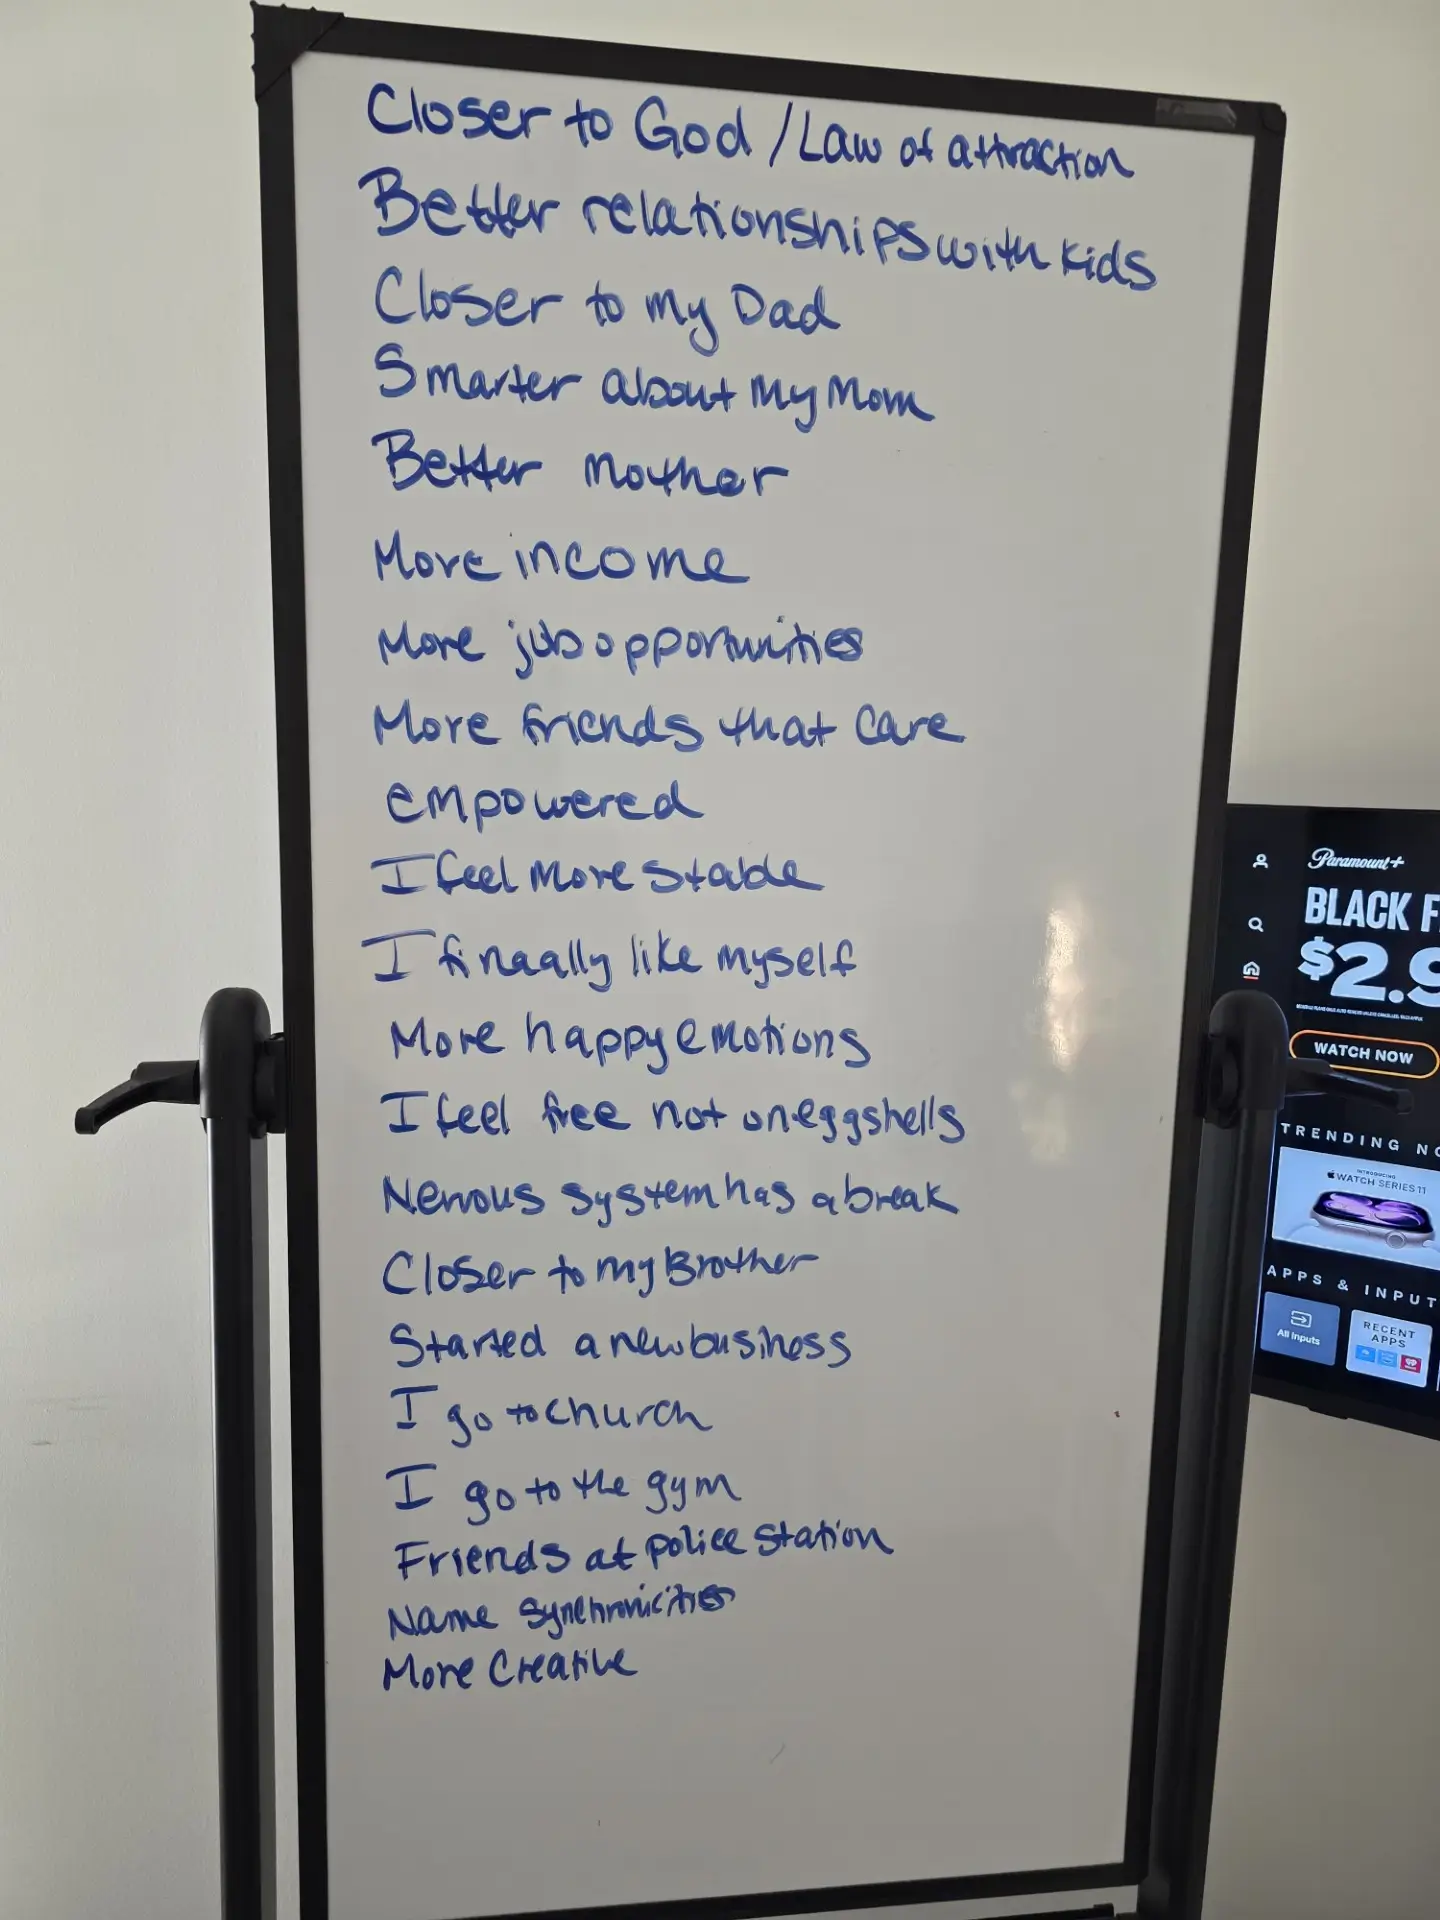 Closer to God / Law of attraction
Better relationships with kids
Closer to my Dad
Smarter about my Mom
Better mother
More income
More job opportunities
More friends that care
empowered
I feel more stable
I finaally like myself
More happy emotions
I feel free not on eggshells
Nervous system has a break
Closer to my Brother
Started a new business
I go to church
I go to the gym
Friends at police station
Name synchronicities
More Creative
Paramount+
BLACK F
$2.9
WATCH NOW
TRENDING NO
INTRODUCING
WATCH SERIES 11
APPS & INPUT
All Inputs
RECENT
APPS